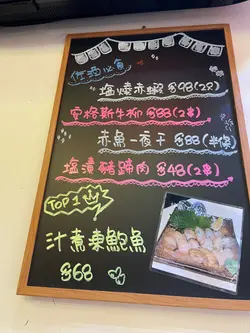 佐酒必食
塩燒赤蝦 $98(2只)
安格斯牛柳 $88(2串)
赤魚一夜干 $88(半條)
塩漬豬蹄肉 $48(2串)
TOP 1
汁煮東鮑魚
$68